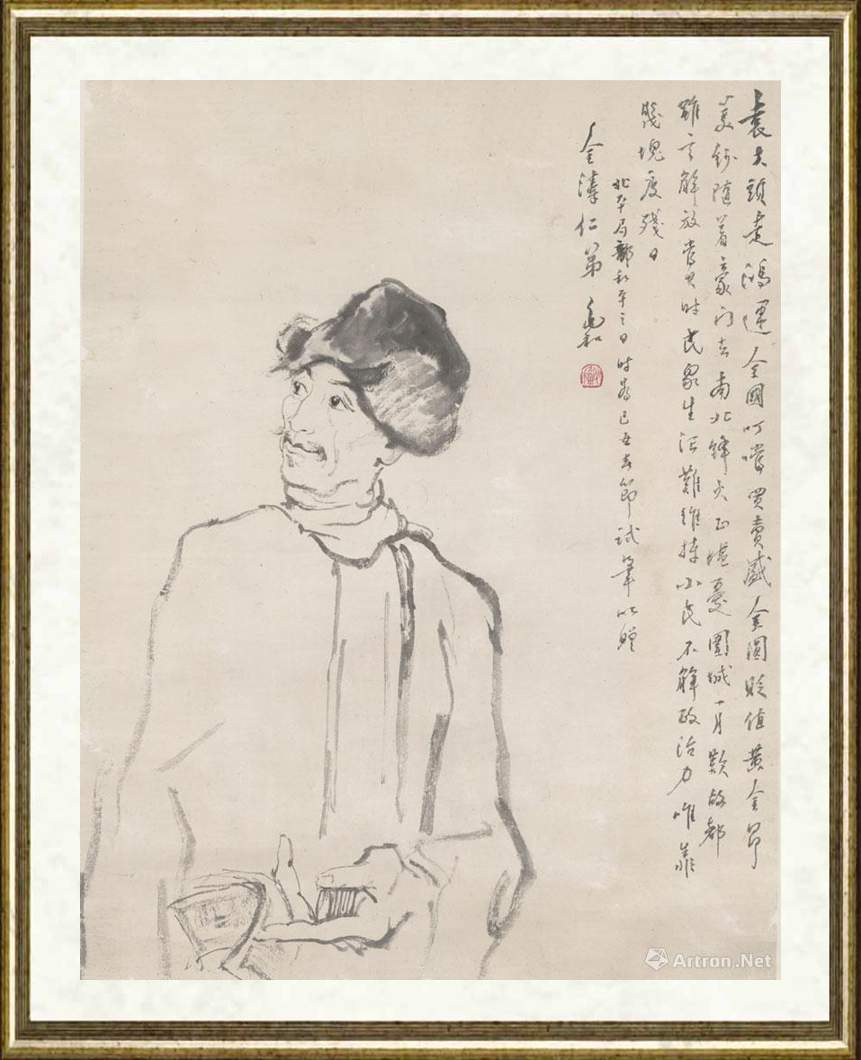 袁大頭走鴻運全國叮噹買賣盛金圓貶值黃金昂
美鈔隨着豪門去南北鋒火正堪憂圍城一月歎故都
雖言解放當有時民眾生活難維持小民不解政治力唯靠
幾塊度殘日
北平局部和平之日時為己丑春節試筆以贈
金濤仁弟 兆和
Artron.Net